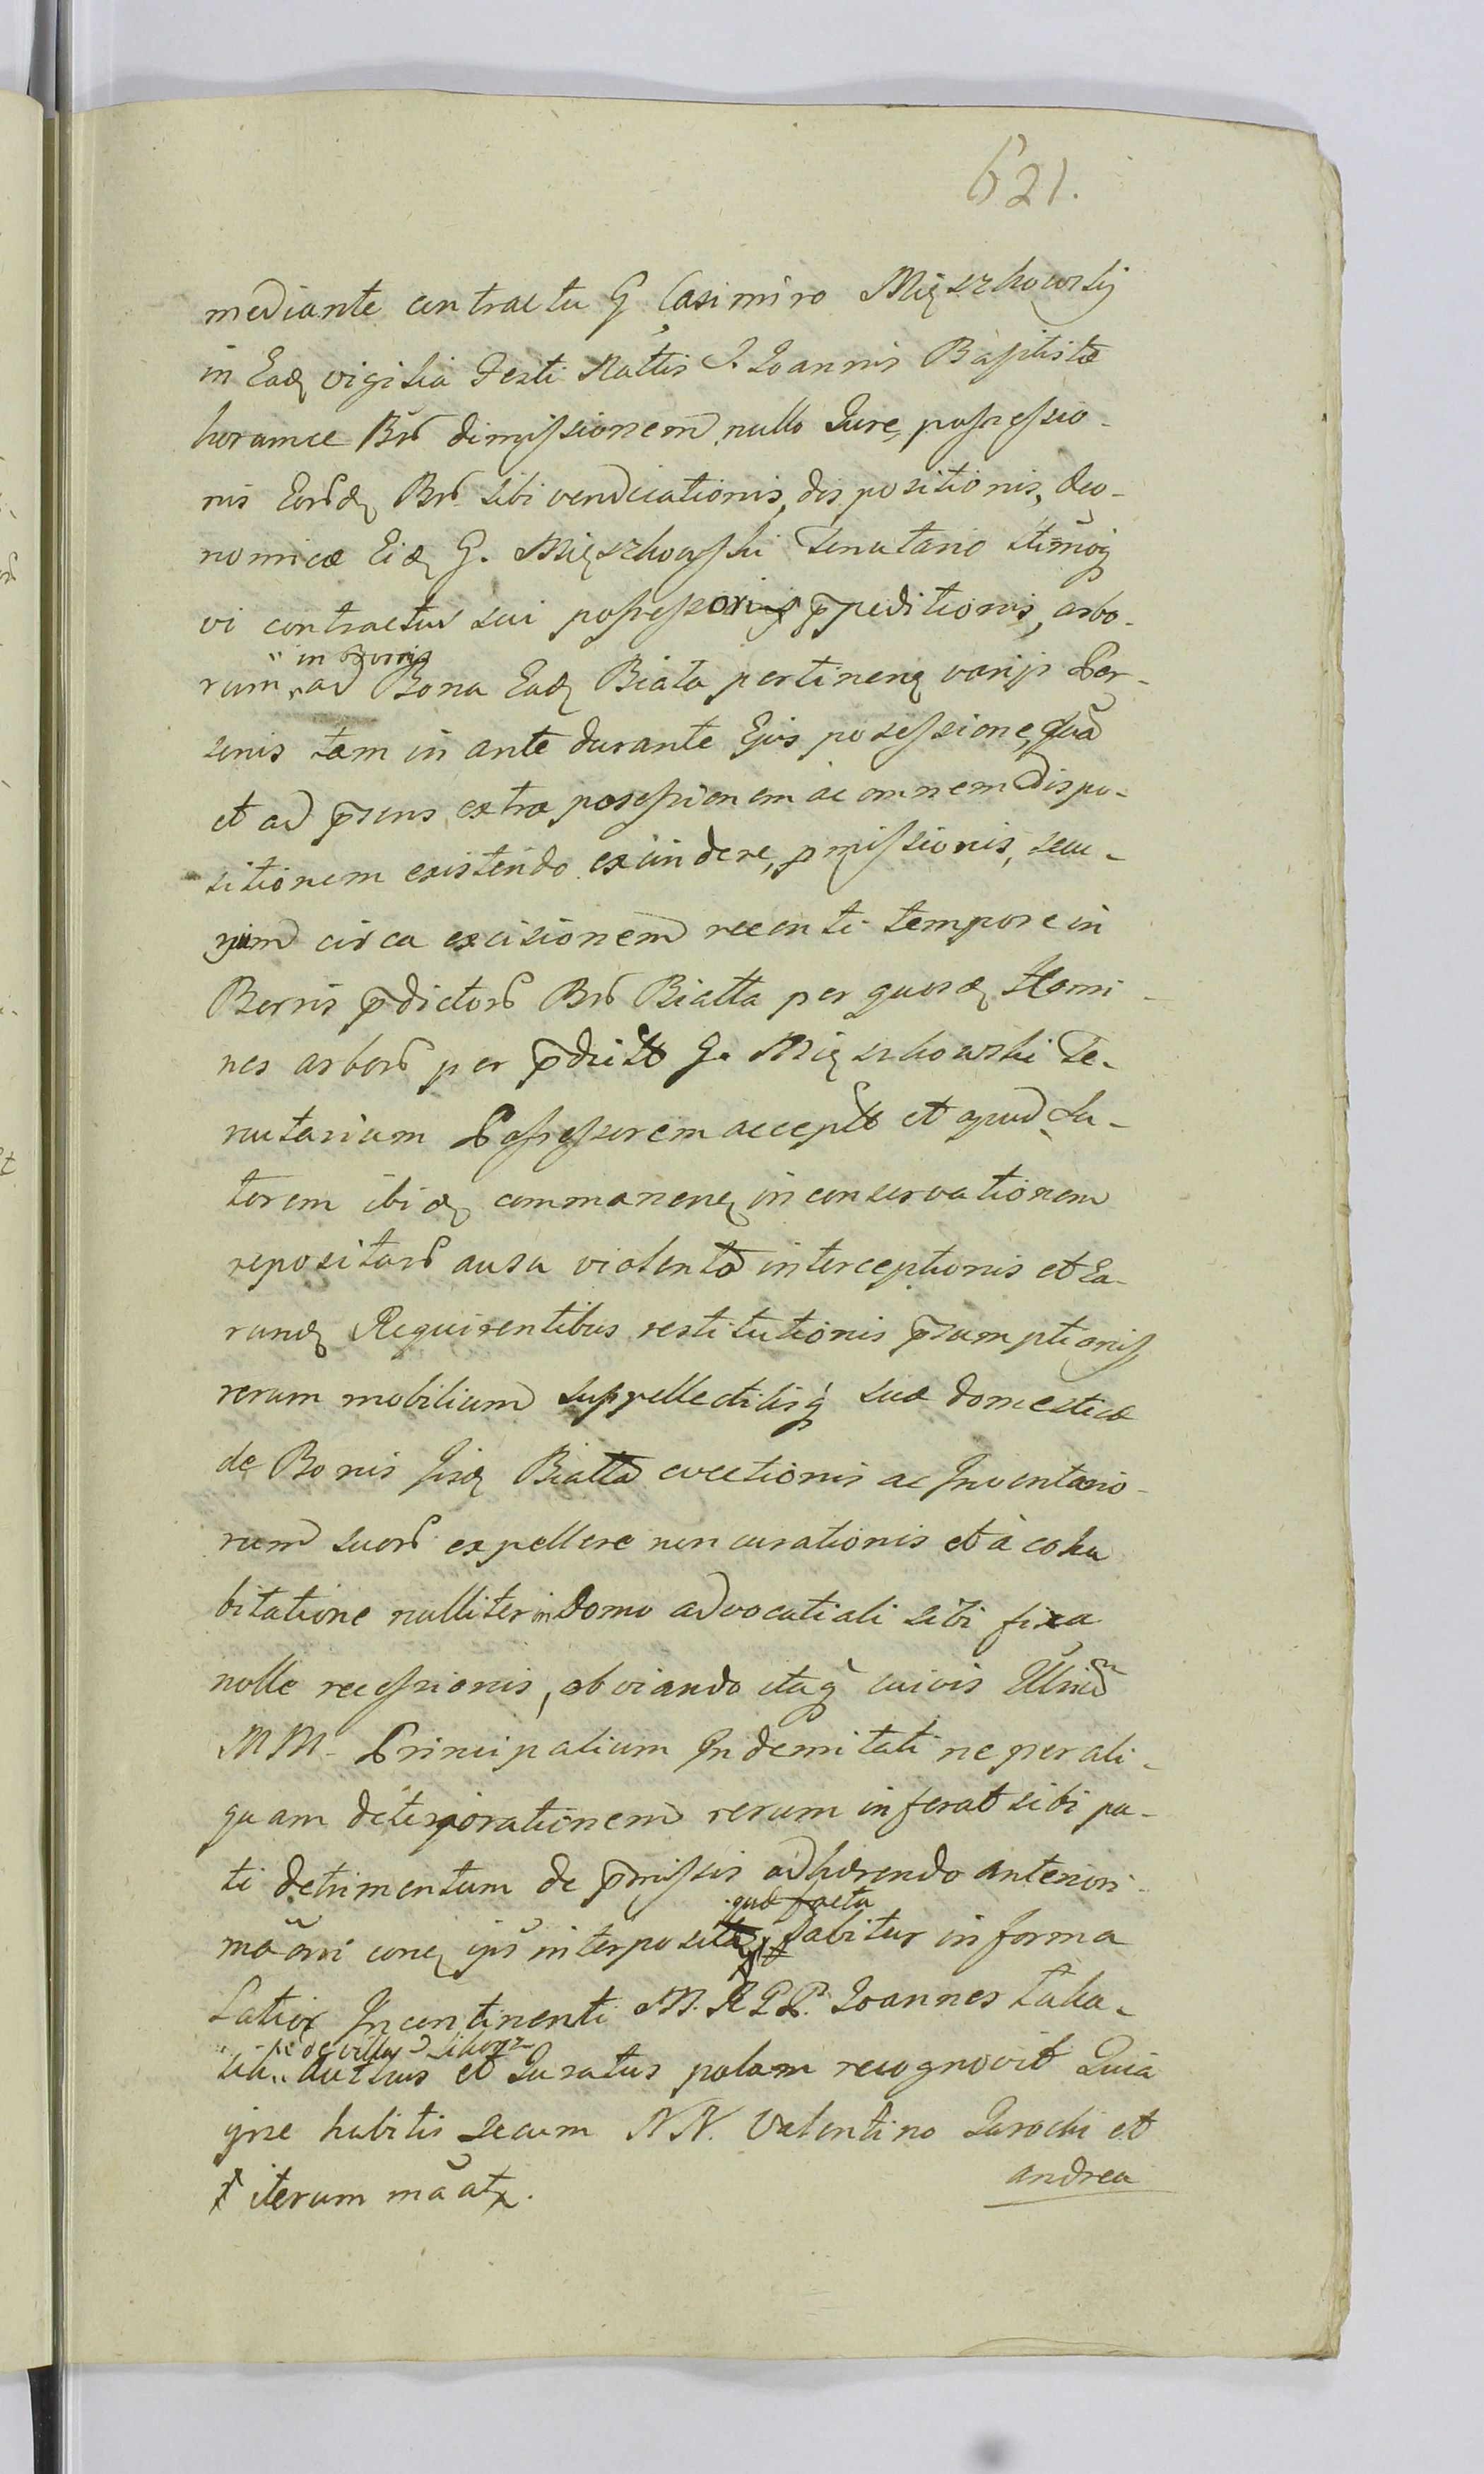 621.
mediante contractu G Casimiro Mięszkowskij
in Eadꝫ vigilia Festi Nattis S. Joannis Baptistæ
horumce Brũ dimiſsionem nullo Jure, poſseſsio-
nis Eorũdꝫ Brũ sibi vendicationis, dispositionis, Oeco-
nomicæ Eidꝫ G. Mięszkowſki Tenutario
vi contractus sui poſseſsori p̄peditionis, arbo-
rum „in Borris
ad Bona Eadꝫ Biała pertinenꝫ varijs Per-
sonis tam in ante durante Ejus poseſsione, quã
et ad p̄sens extra poseſsionem ac omnem dispo-
sitionem existendo exindere, p̄miſsionis, secu-
rim circa excisionem recenti tempore in
Borris p̄dictorũ Brũ Biatta per quosdꝫ Homi-
nes arborũ per p̄dictũ G. Mięszkowski Te-
nutarium Poſseſsorem accepto et apud Su-
torem ibidꝫ commanenꝫ in conservationem
repositarũ ausu violento interceptionis et Ea-
rundꝫ Requirentibus restitutionis p̄sumptionis,
rerum mobilium suppellectilisq́ suæ domesticæ
de Bonis Iisdꝫ Biatta evectionis ac Inventario-
rum suorũ expellere non curationis et à coha
bitatione nulliter in Domo advocatiali sibi fixa
nolle receſsionis, obviando itaq́ cuivis
MM. Principalium Indemitati ne per ali-
quam deteriorationem rerum inferat sibi pa-
ti detrimentum de p̄miſsis adhærendo anteriori
quæ facta
mãõni conꝫ ip̃ũ interposita, dabitur in forma
Latiori Incontinenti M. R G P. Joannes Taka-
„de villa
sik „ Auttus et Juratus palam recognovit Quia
ipse habitis secum NN. Valentino Jarocki et
Andrea
iterum mãatꝫ.